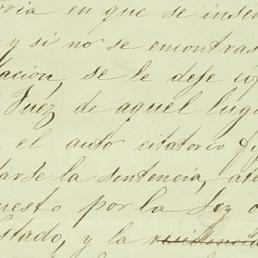 oria en que se inser
y si no se encontras
ación, se le deje co
Juez de aquel luga
el auto citatorio
tarse la sentencia, ate
uesto por la Ley
stado, y la residencia